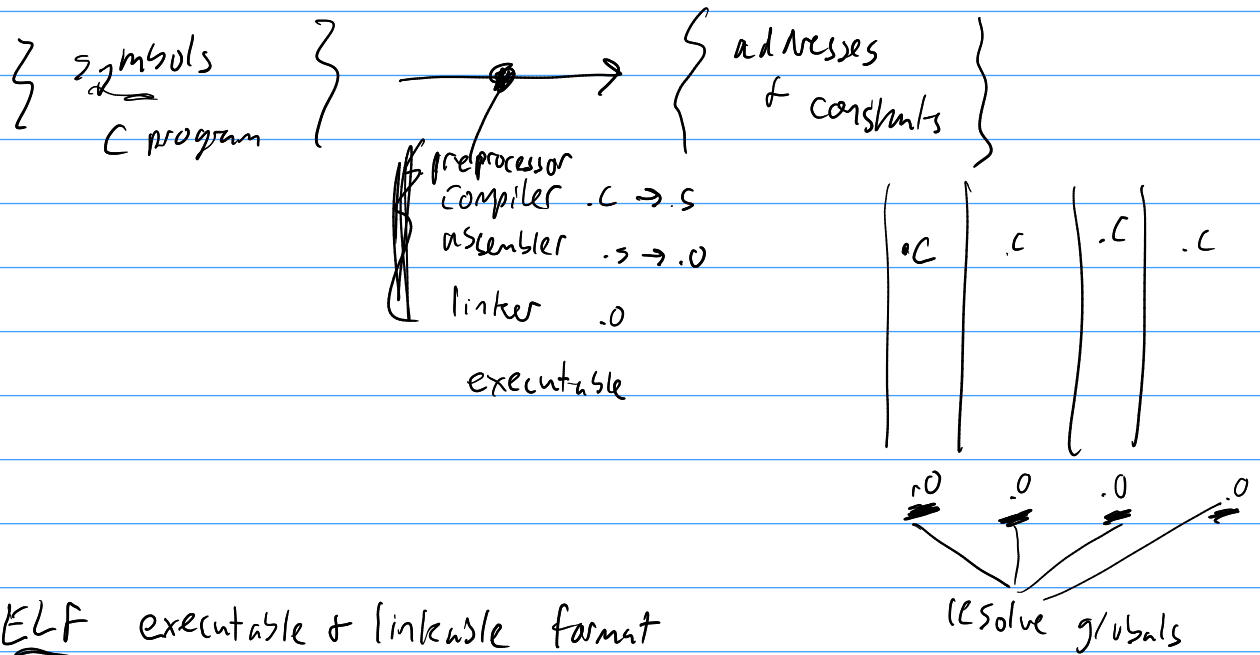 symbols
C program
addresses
& constants
preprocessor
compiler .c → .s
assembler .s → .o
linker .o
executable
.c .c .c .c
.o .o .o .o
resolve globals
ELF executable & linkable format